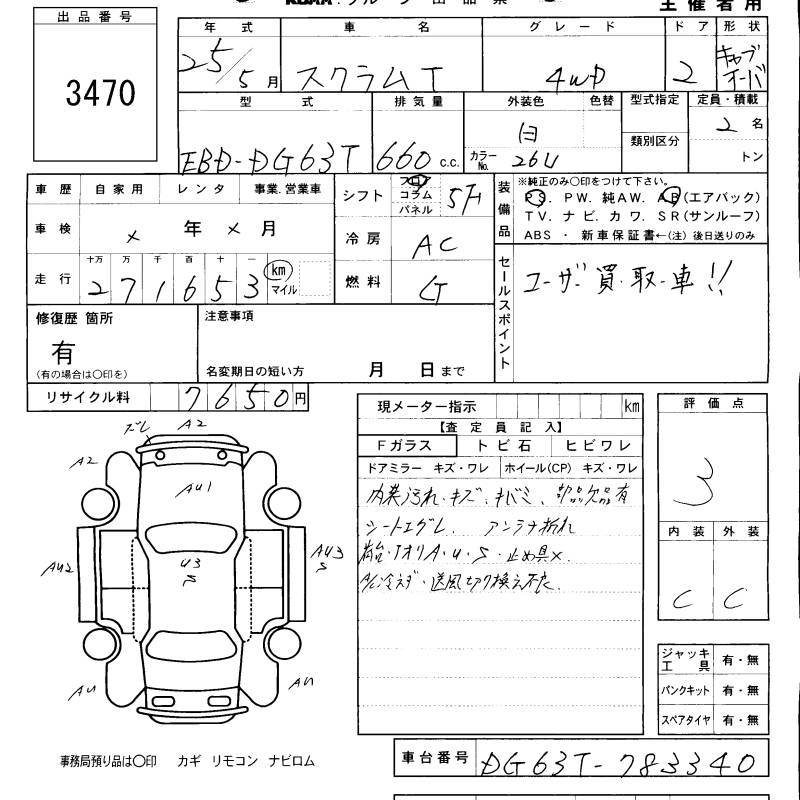 主催者用
出品番号
3470
年式 車名 グレード ドア 形状
25/5月 スクラムT 4WD 2 キャブオーバ
型式 排気量 外装色 色替 型式指定 定員・積載
EBD-DG63T 660c.c. 白 カラーNo. 26U 類別区分 2名
トン
車歴 自家用 レンタ 事業.営業車
車検 × 年 × 月
走行 十万 万 千 百 十 一
271653 km マイル
シフト フロア コラム パネル 5F
冷房 AC
燃料 G
装備品
※純正のみ○印をつけて下さい。
PS. PW. 純AW. AB(エアバック)
TV. ナビ. カワ. SR(サンルーフ)
ABS ・ 新車保証書←(注) 後日送りのみ
セールスポイント
ユーザー買取車!!
修復歴 箇所
有
(有の場合は○印を)
注意事項
名変期日の短い方 月 日まで
リサイクル料 7650円
現メーター指示 km
【査定員記入】
Fガラス トビ石 ヒビワレ
ドアミラー キズ・ワレ ホイール(CP) キズ・ワレ
内装汚れ・キズ・キバミ、部品欠品有
シートエグレ. アンテナ折れ
荷台・アオリA・U・S・止め具×
A/C冷えず・送風切り換え不良
評価点
3
内装 外装
C C
ズレ A2
A2
AU1
U3
S
AU2
AU3
S
AU
AU
ジャッキ工具 有・無
パンクキット 有・無
スペアタイヤ 有・無
事務局預り品は○印 カギ リモコン ナビロム
車台番号 DG63T-783340